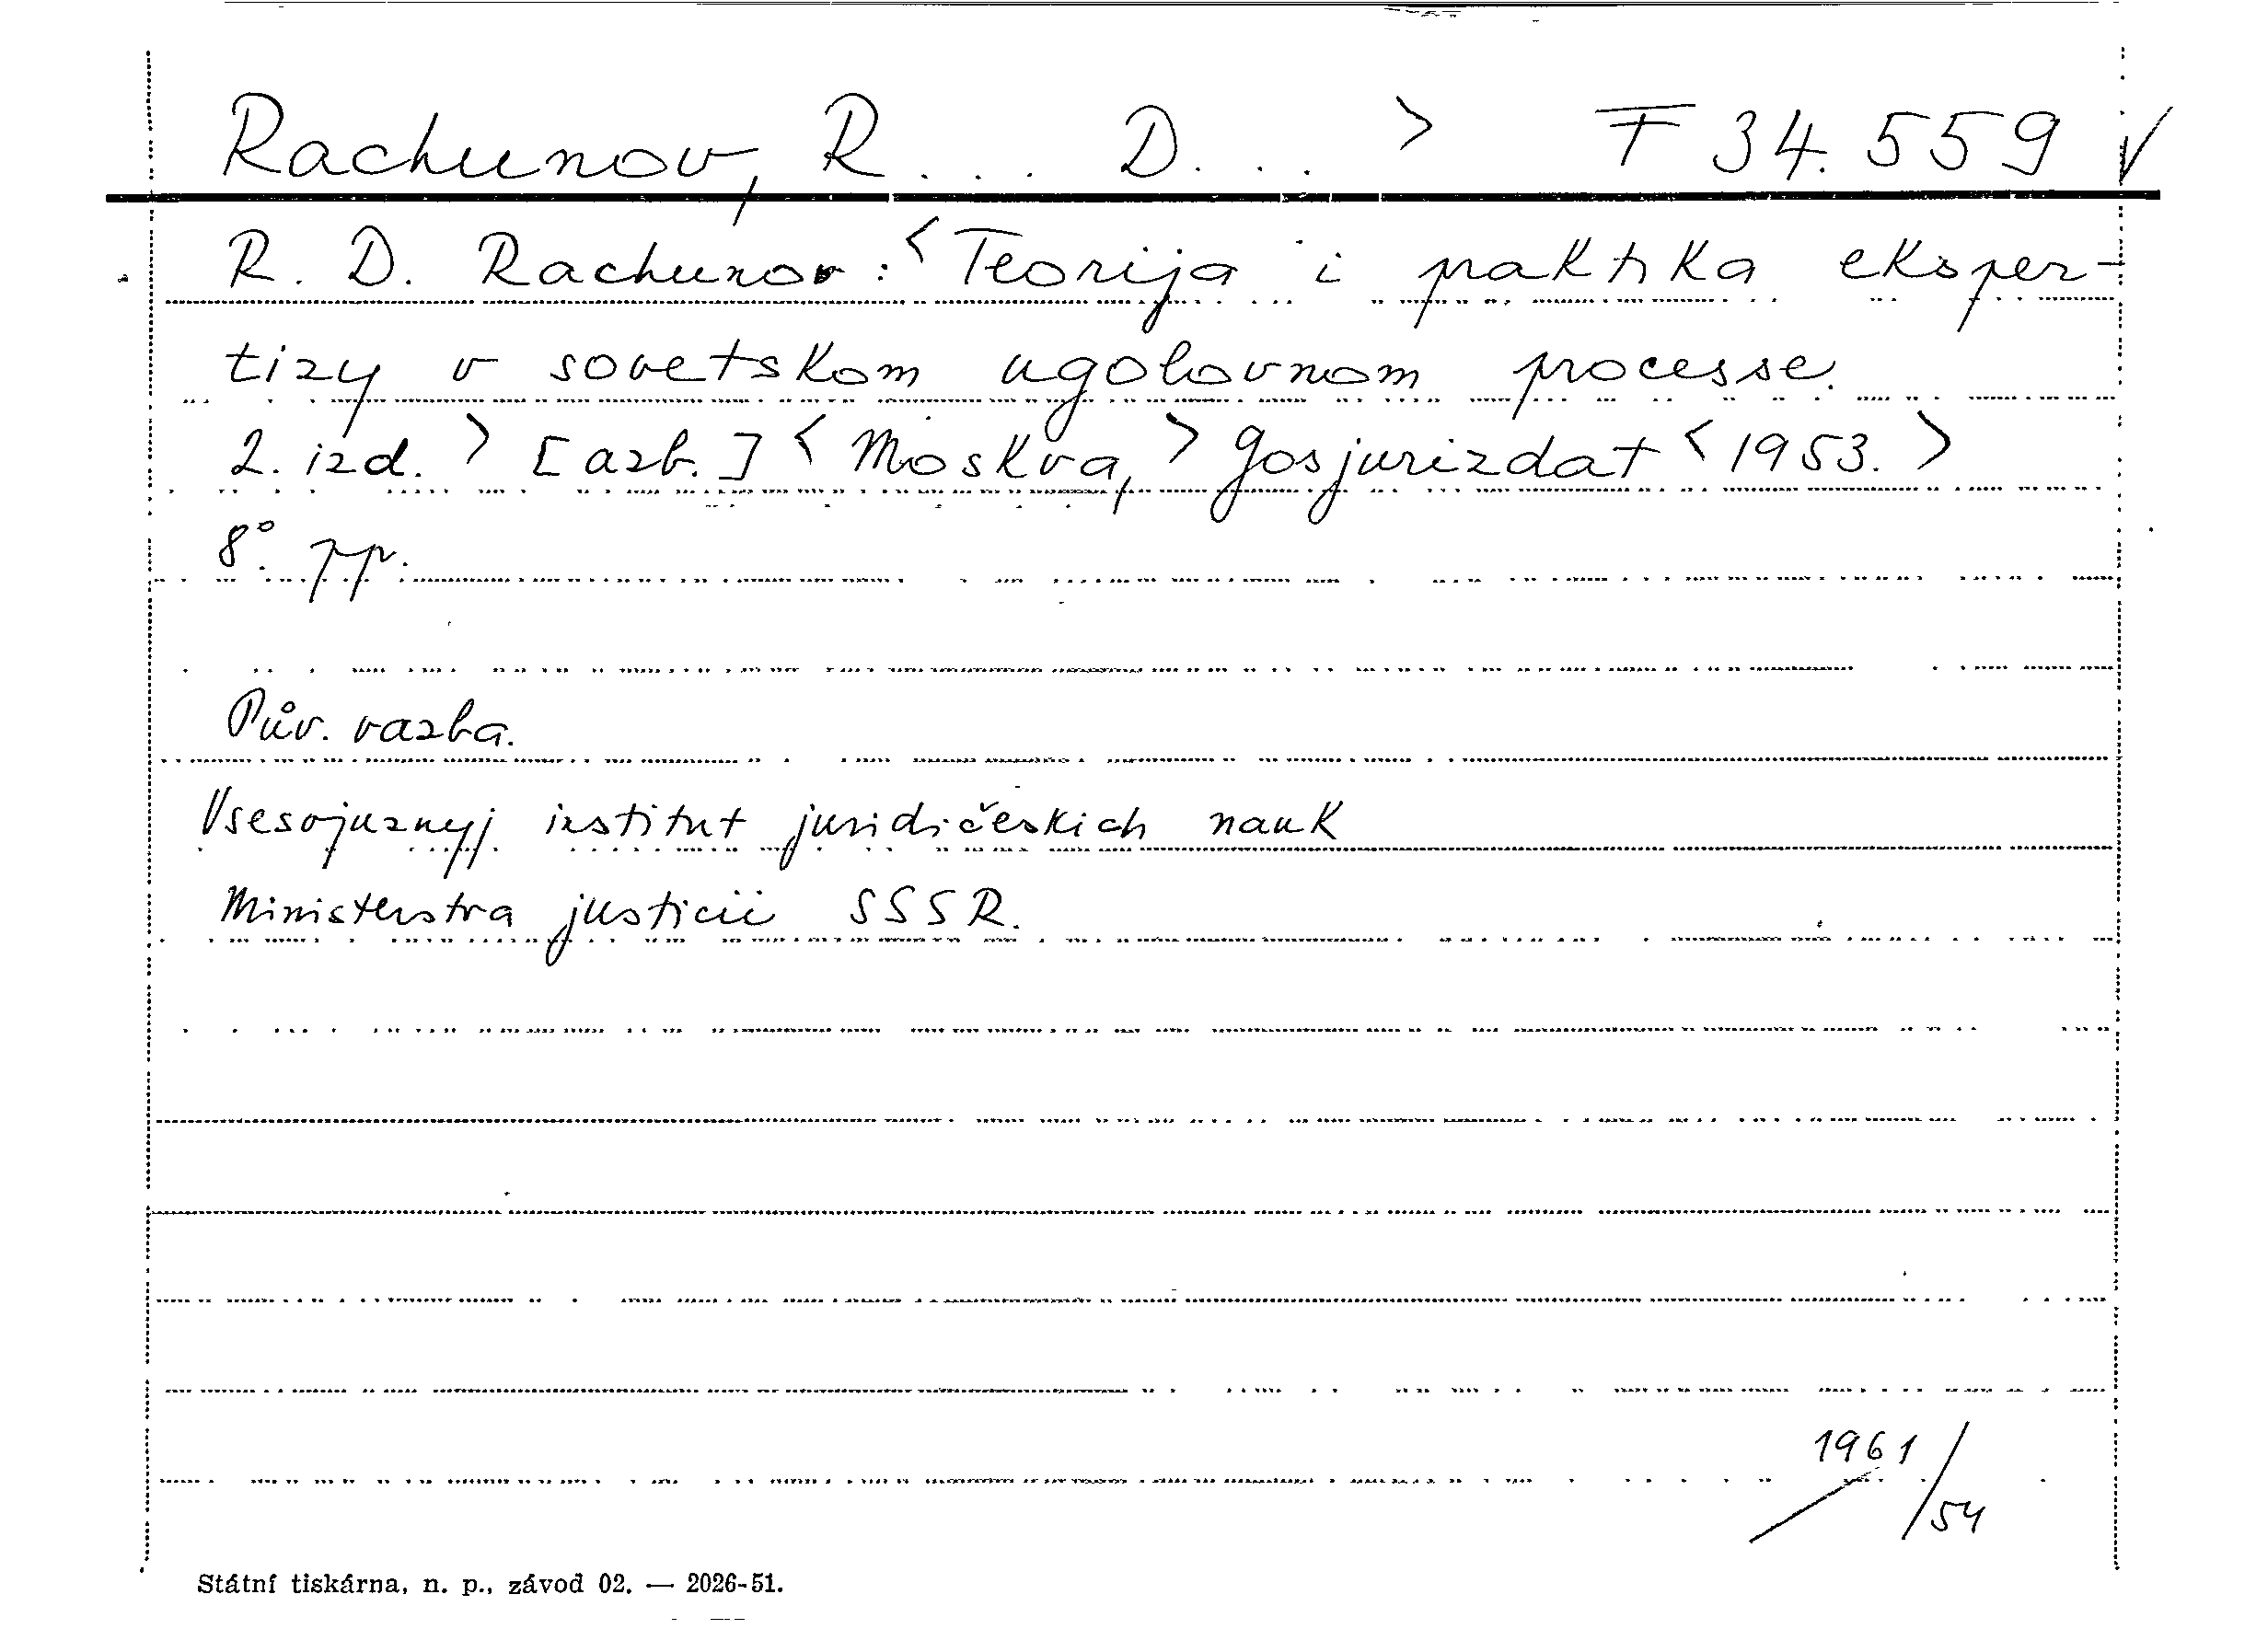 Rachunov, R... D... > F 34.559 √
R. D. Rachunov: <Teorija i praktika eksper-
tizy v sovetskom ugolovnom processe.
2. izd. > [azb.] < Moskva, > Gosjurizdat < 1953. >
8°. pp.
Pův. vazba.
Vsesojuznyj institut juridičeskich nauk
Ministerstva justicii SSSR.
1961/54
Státní tiskárna, n. p., závod 02. — 2026-51.